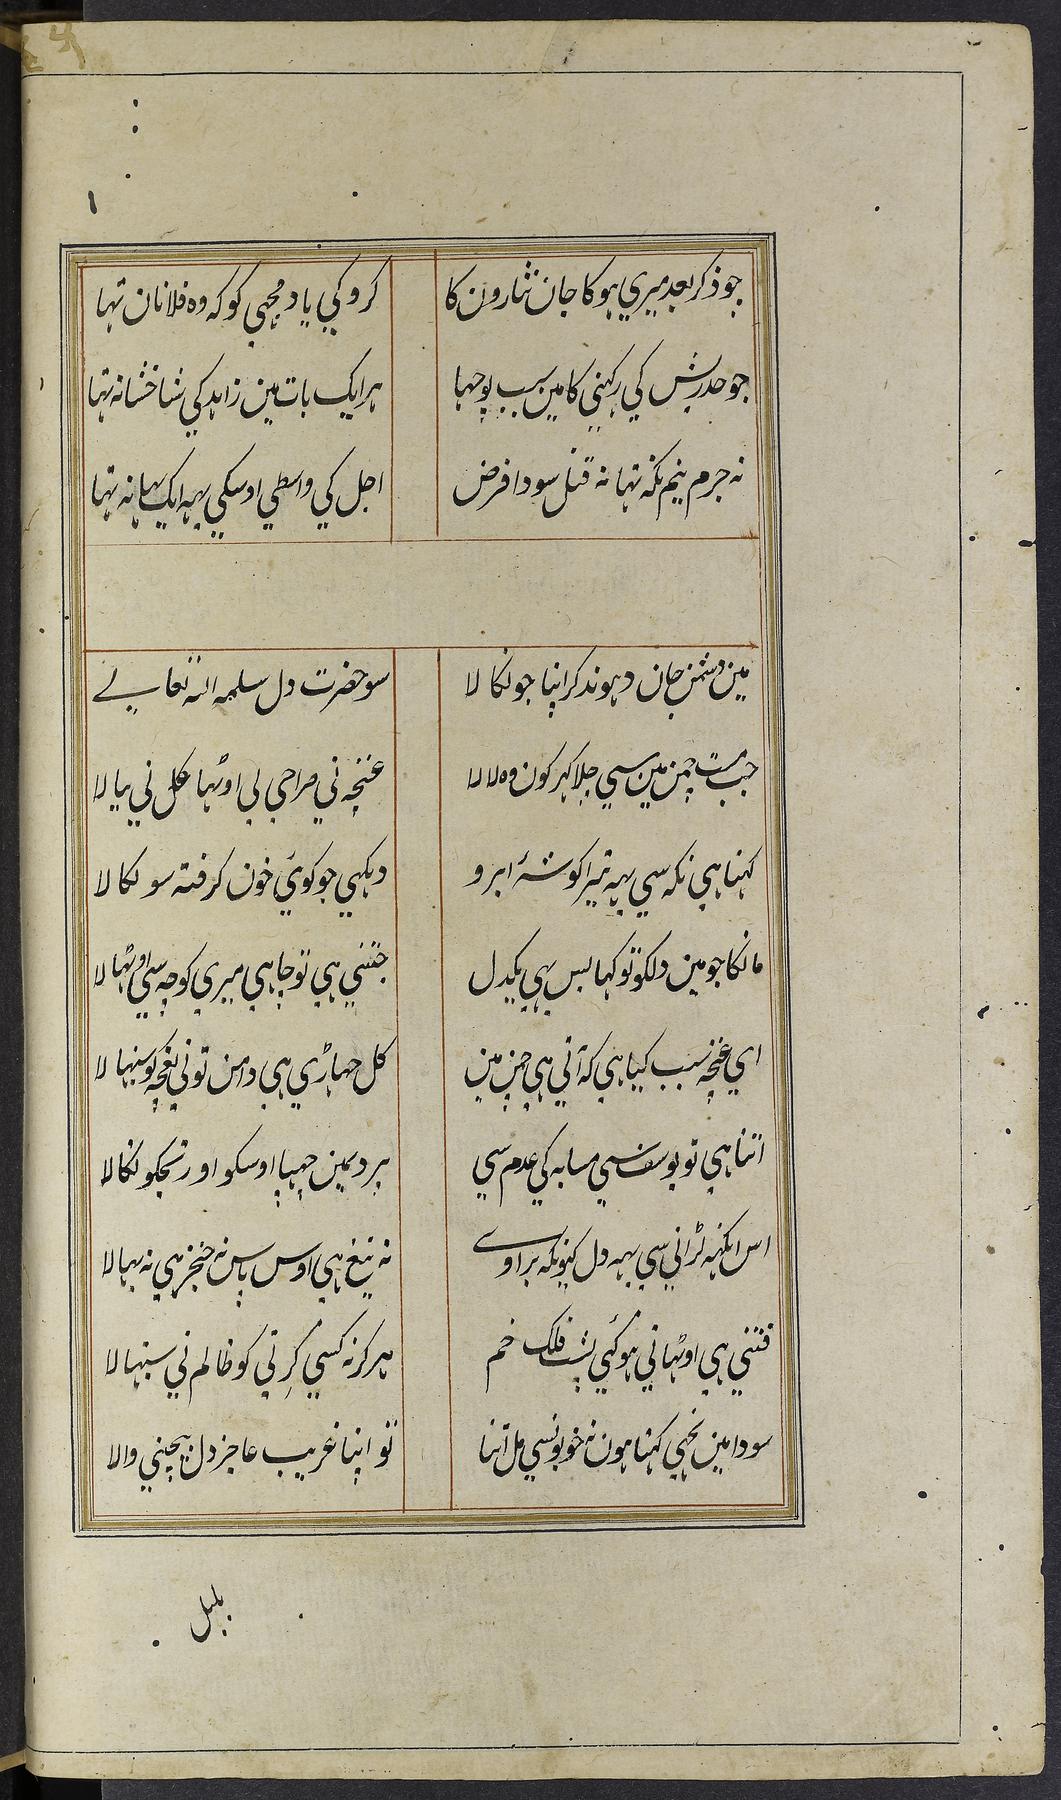 جو ذکر بعد میری ہوکا جان نثارون کا
کروکی یاد مجہی کوکہ وہ فلانان تہا
جو حد ریش کی رکہنی کا مین سبب پوچہا
ہر ایک بات مین زاہد کی شاخشانہ تہا
نہ جرم نیم نکہ تہا نہ قتل سودا فرض
اجل کی واسطی اوسکی یہہ ایک بہانہ تہا
مین دشمن جان دہوند کر اپنا جو نکالا
سو حضرت دل سلمہ اللہ تعالے
جب مست چمن مین سی چلا کہر کون وہ لالا
غنچہ نی صراحی لی اوٹہا کل نی پیالا
کہتا ہی نکہ سی یہہ تیرا کوشۂ ابرو
دیکہی جو کوئی خون کرفتہ سو نکالا
مانکا جو مین دلکو تو کہا بس یہی یکدل
جتنی ہی تو چاہی میری کوچہ سی اوٹہا لا
ای غنچہ سبب کیا ہی کہ آتی ہی چمن مین
کل جہاڑی ہی دامن تو نی بغچہ کو سنبہالا
اتنا ہی تو یوسف سی مشابہ کی عدم سی
پر دیمین چہپا اوسکو اور تجکو نکالا
اس انکہہ لڑانی سی یہہ دل کیونکہ براوے
نہ تیغ ہی اوس پاس نہ خنجر ہی نہ بہالا
فتنی ہی اوٹہانی ہو کئی پشت فلک خم
ہر کز نہ کسی کرتی کو ظالم نی سنبہالا
سودا مین تجہی کہتا ہون نہ خوبونسی مل اتنا
تو اپنا غریب عاجز دل بیچنی والا
بلبل